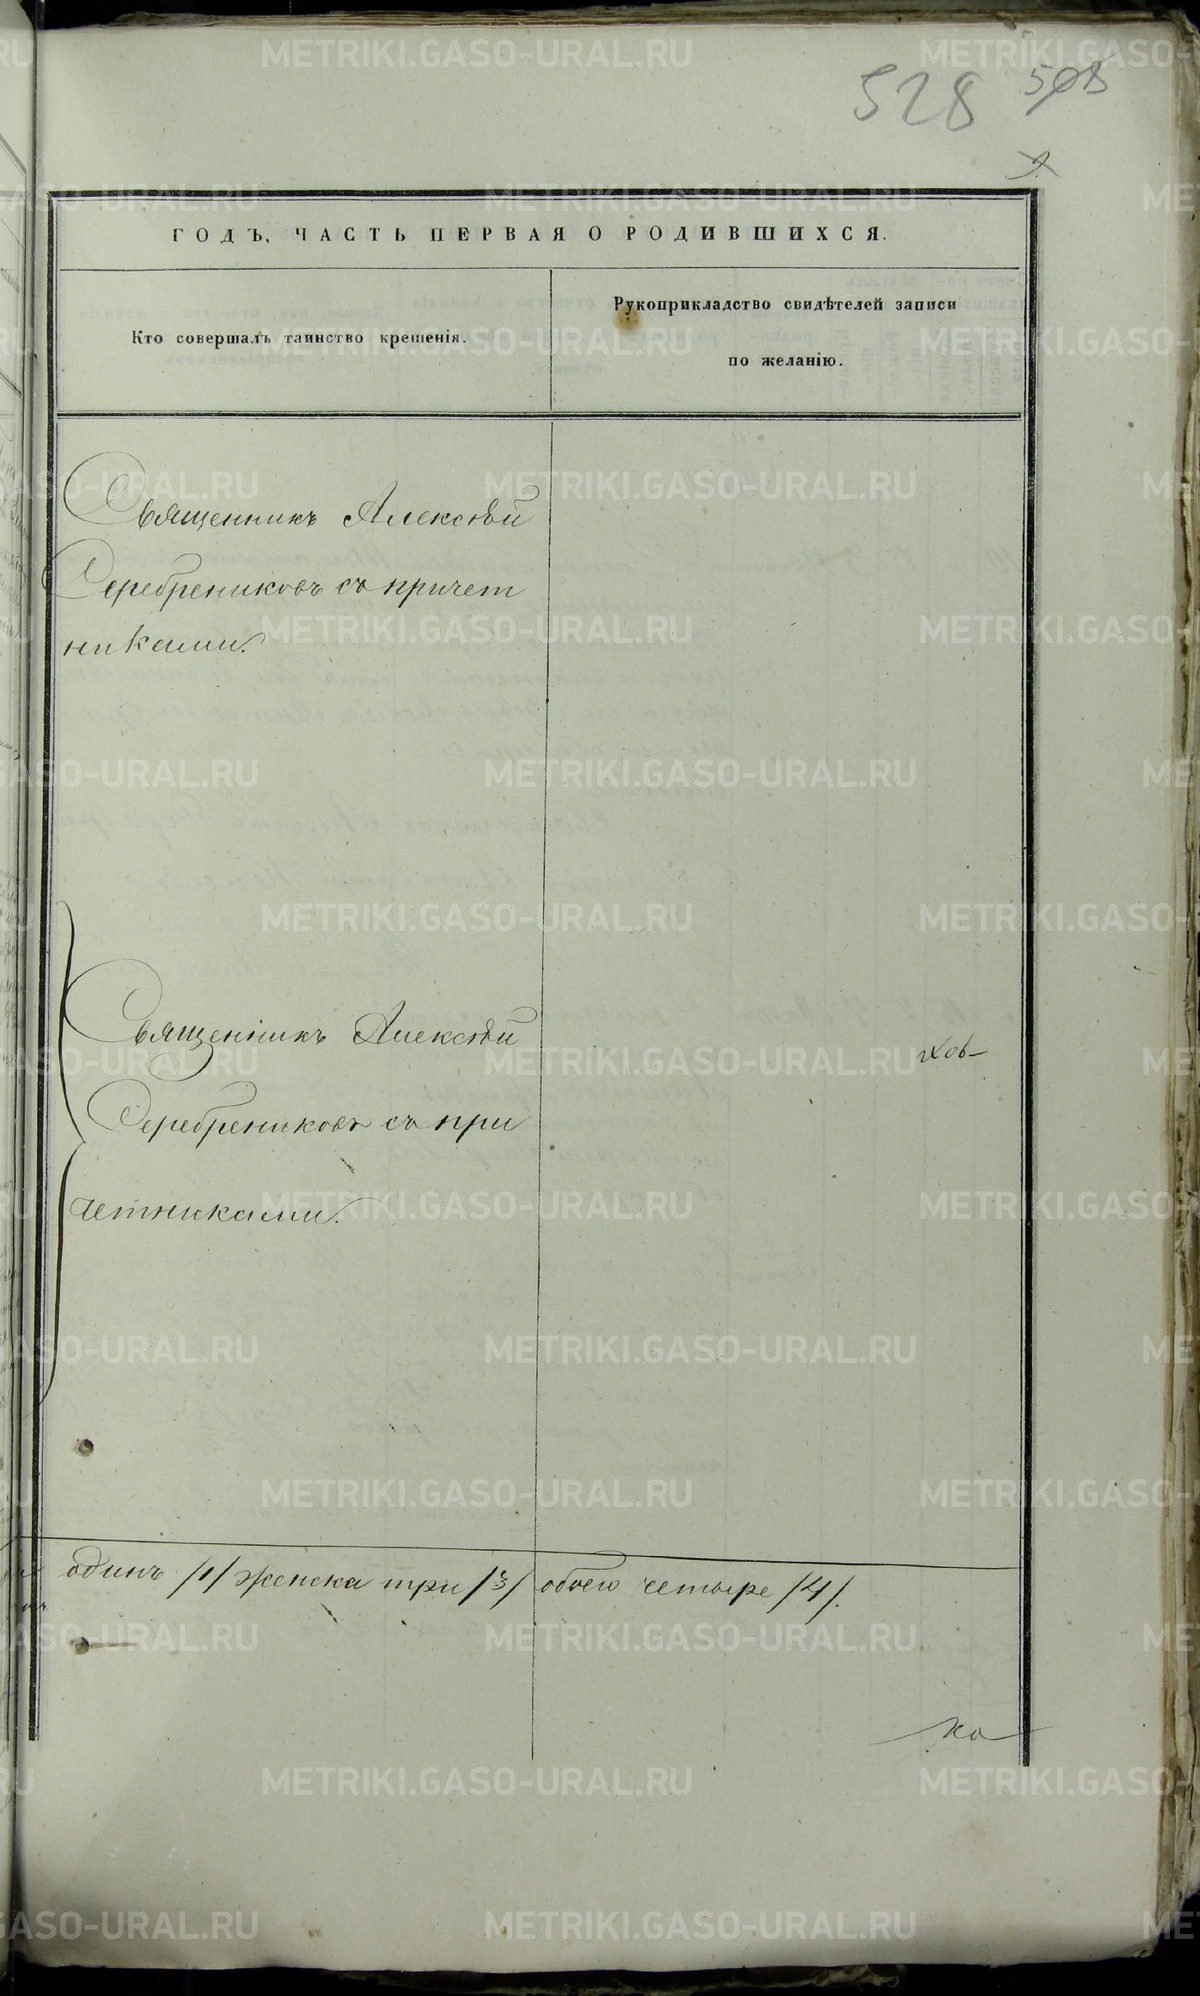 528 508
ГОДЪ, ЧАСТЬ ПЕРВАЯ О РОДИВШИХСЯ.
Кто совершалъ таинство крещенія.
Рукоприкладство свидѣтелей записи
по желанію.
Священникъ Алексѣй
Серебрениковъ съ причет
никами.
Священникъ Алексѣй
Серебрениковъ съ при
четниками.
одинъ /1/ женска три /3/ обоего четыре /4/.
METRIKI.GASO-URAL.RU